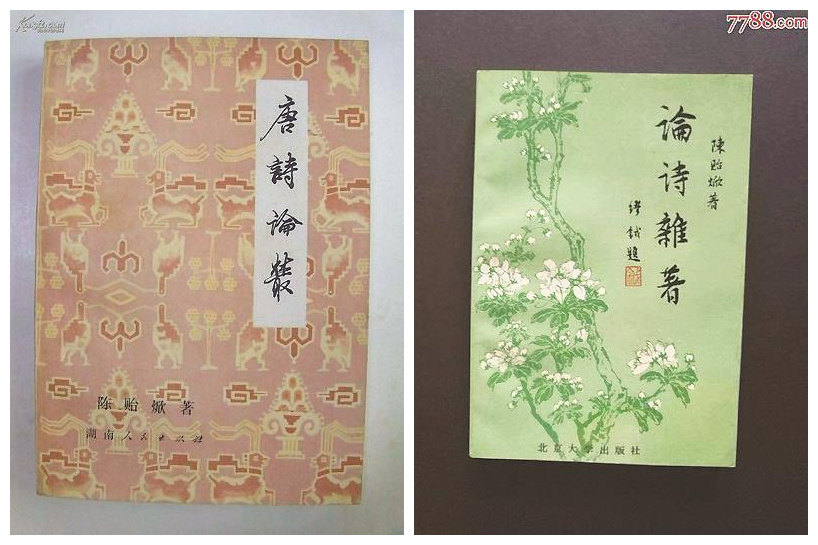 唐詩論叢
陈贻焮著
湖南人民出版社
7788.com
論诗雜著
陳貽焮著
缪鉞題
北京大学出版社